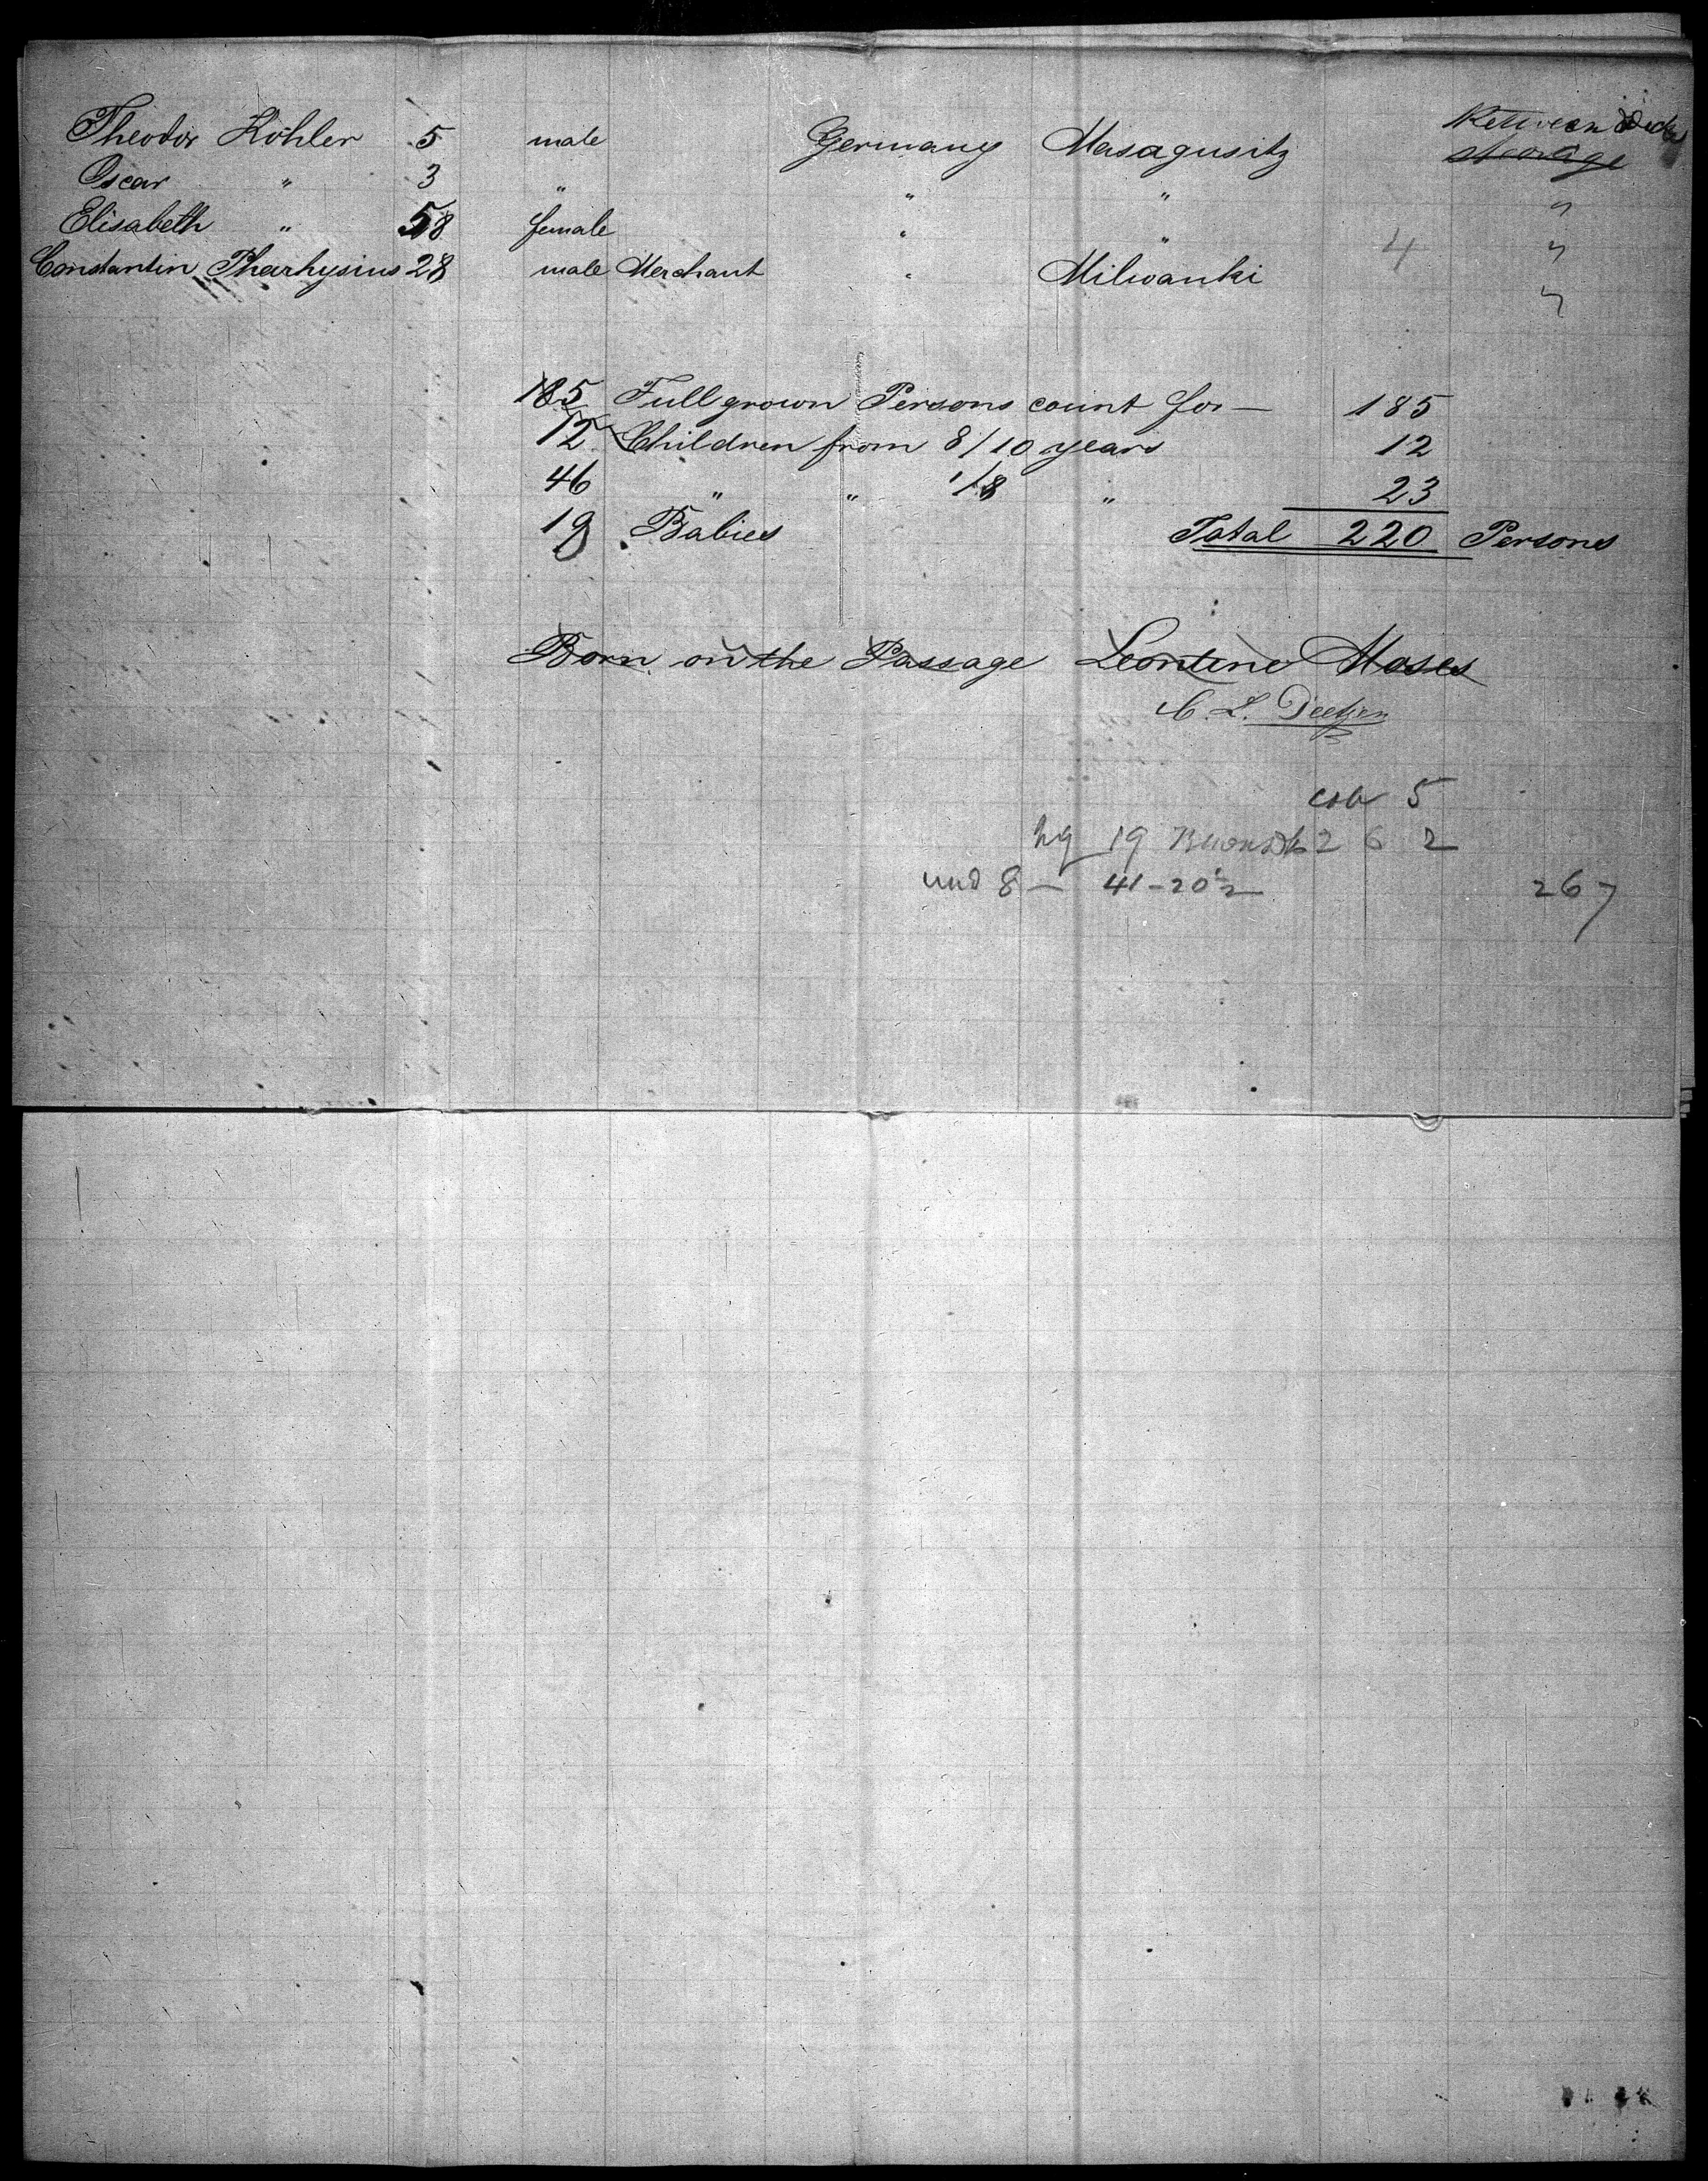 Between Decks
Theodor Köhler 5 male Germany Masagusitz steerage
Oscar " 3 " " " "
Elisabeth " 58 female " " 4 "
Constantin Pharhysius 28 male Merchant " Milwanki "
185 Full grown Persons count for — 185
12 Children from 8/10 years 12
46 " " 1/8 " 23
19 Babies Total 220 Persons
Born on the Passage Leontine Moses
C. L. Deetjen
cab 5
19 2 6 2
und 8 — 41 - 20½ 267